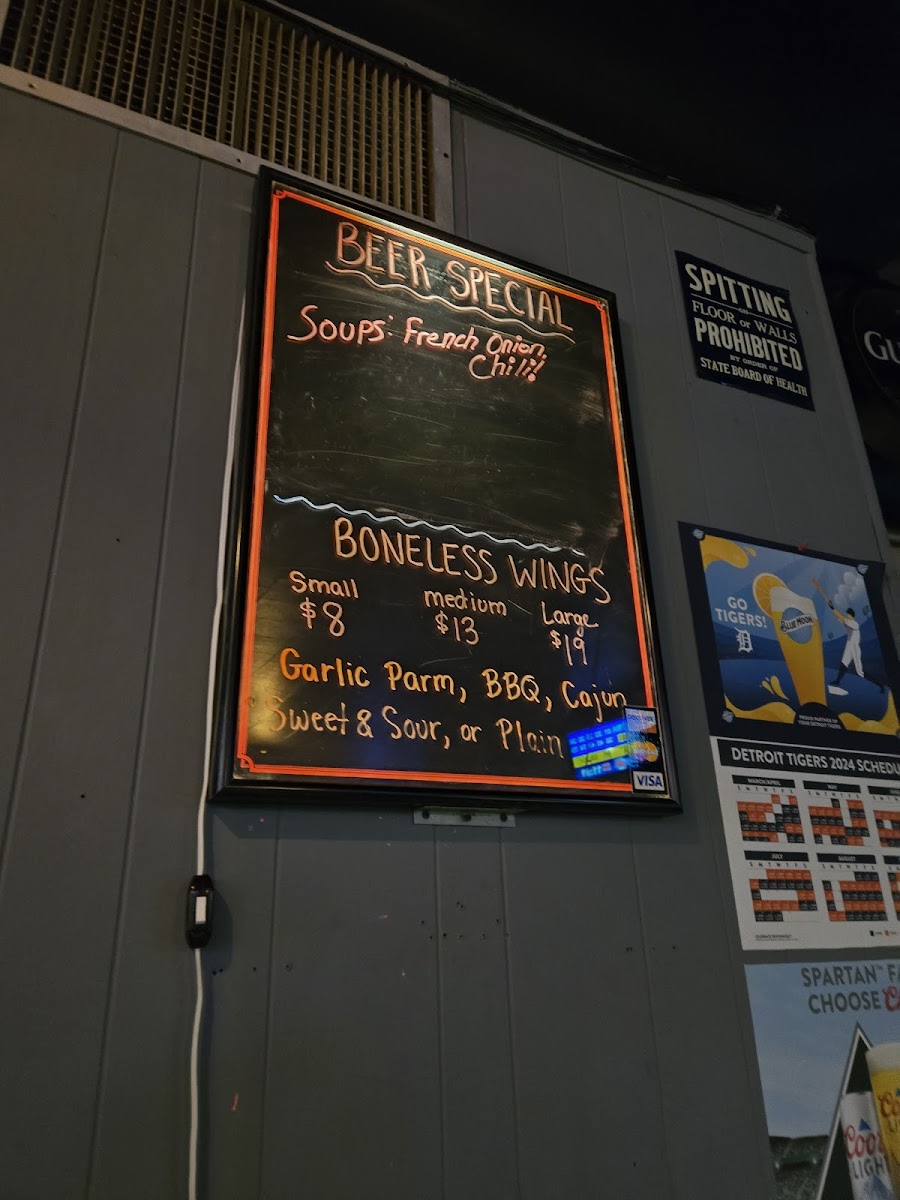 BEER SPECIAL
Soups: French Onion,
Chili!
BONELESS WINGS
Small medium Large
$8 $13 $19
Garlic Parm, BBQ, Cajun
Sweet & Sour, or Plain
DISCOVER
VISA
SPITTING
ON
FLOOR or WALLS
PROHIBITED
BY ORDER OF
STATE BOARD OF HEALTH
GU
GO
TIGERS!
D
BLUE MOON
PROUD PARTNER OF
YOUR DETROIT TIGERS
DETROIT TIGERS 2024 SCHEDU
MARCH/APRIL MAY
S M T W T F S S M T W T F S
JULY AUGUST
S M T W T F S S M T W T F S
SPARTAN™ FA
CHOOSE C
Coors
LIGHT
Co